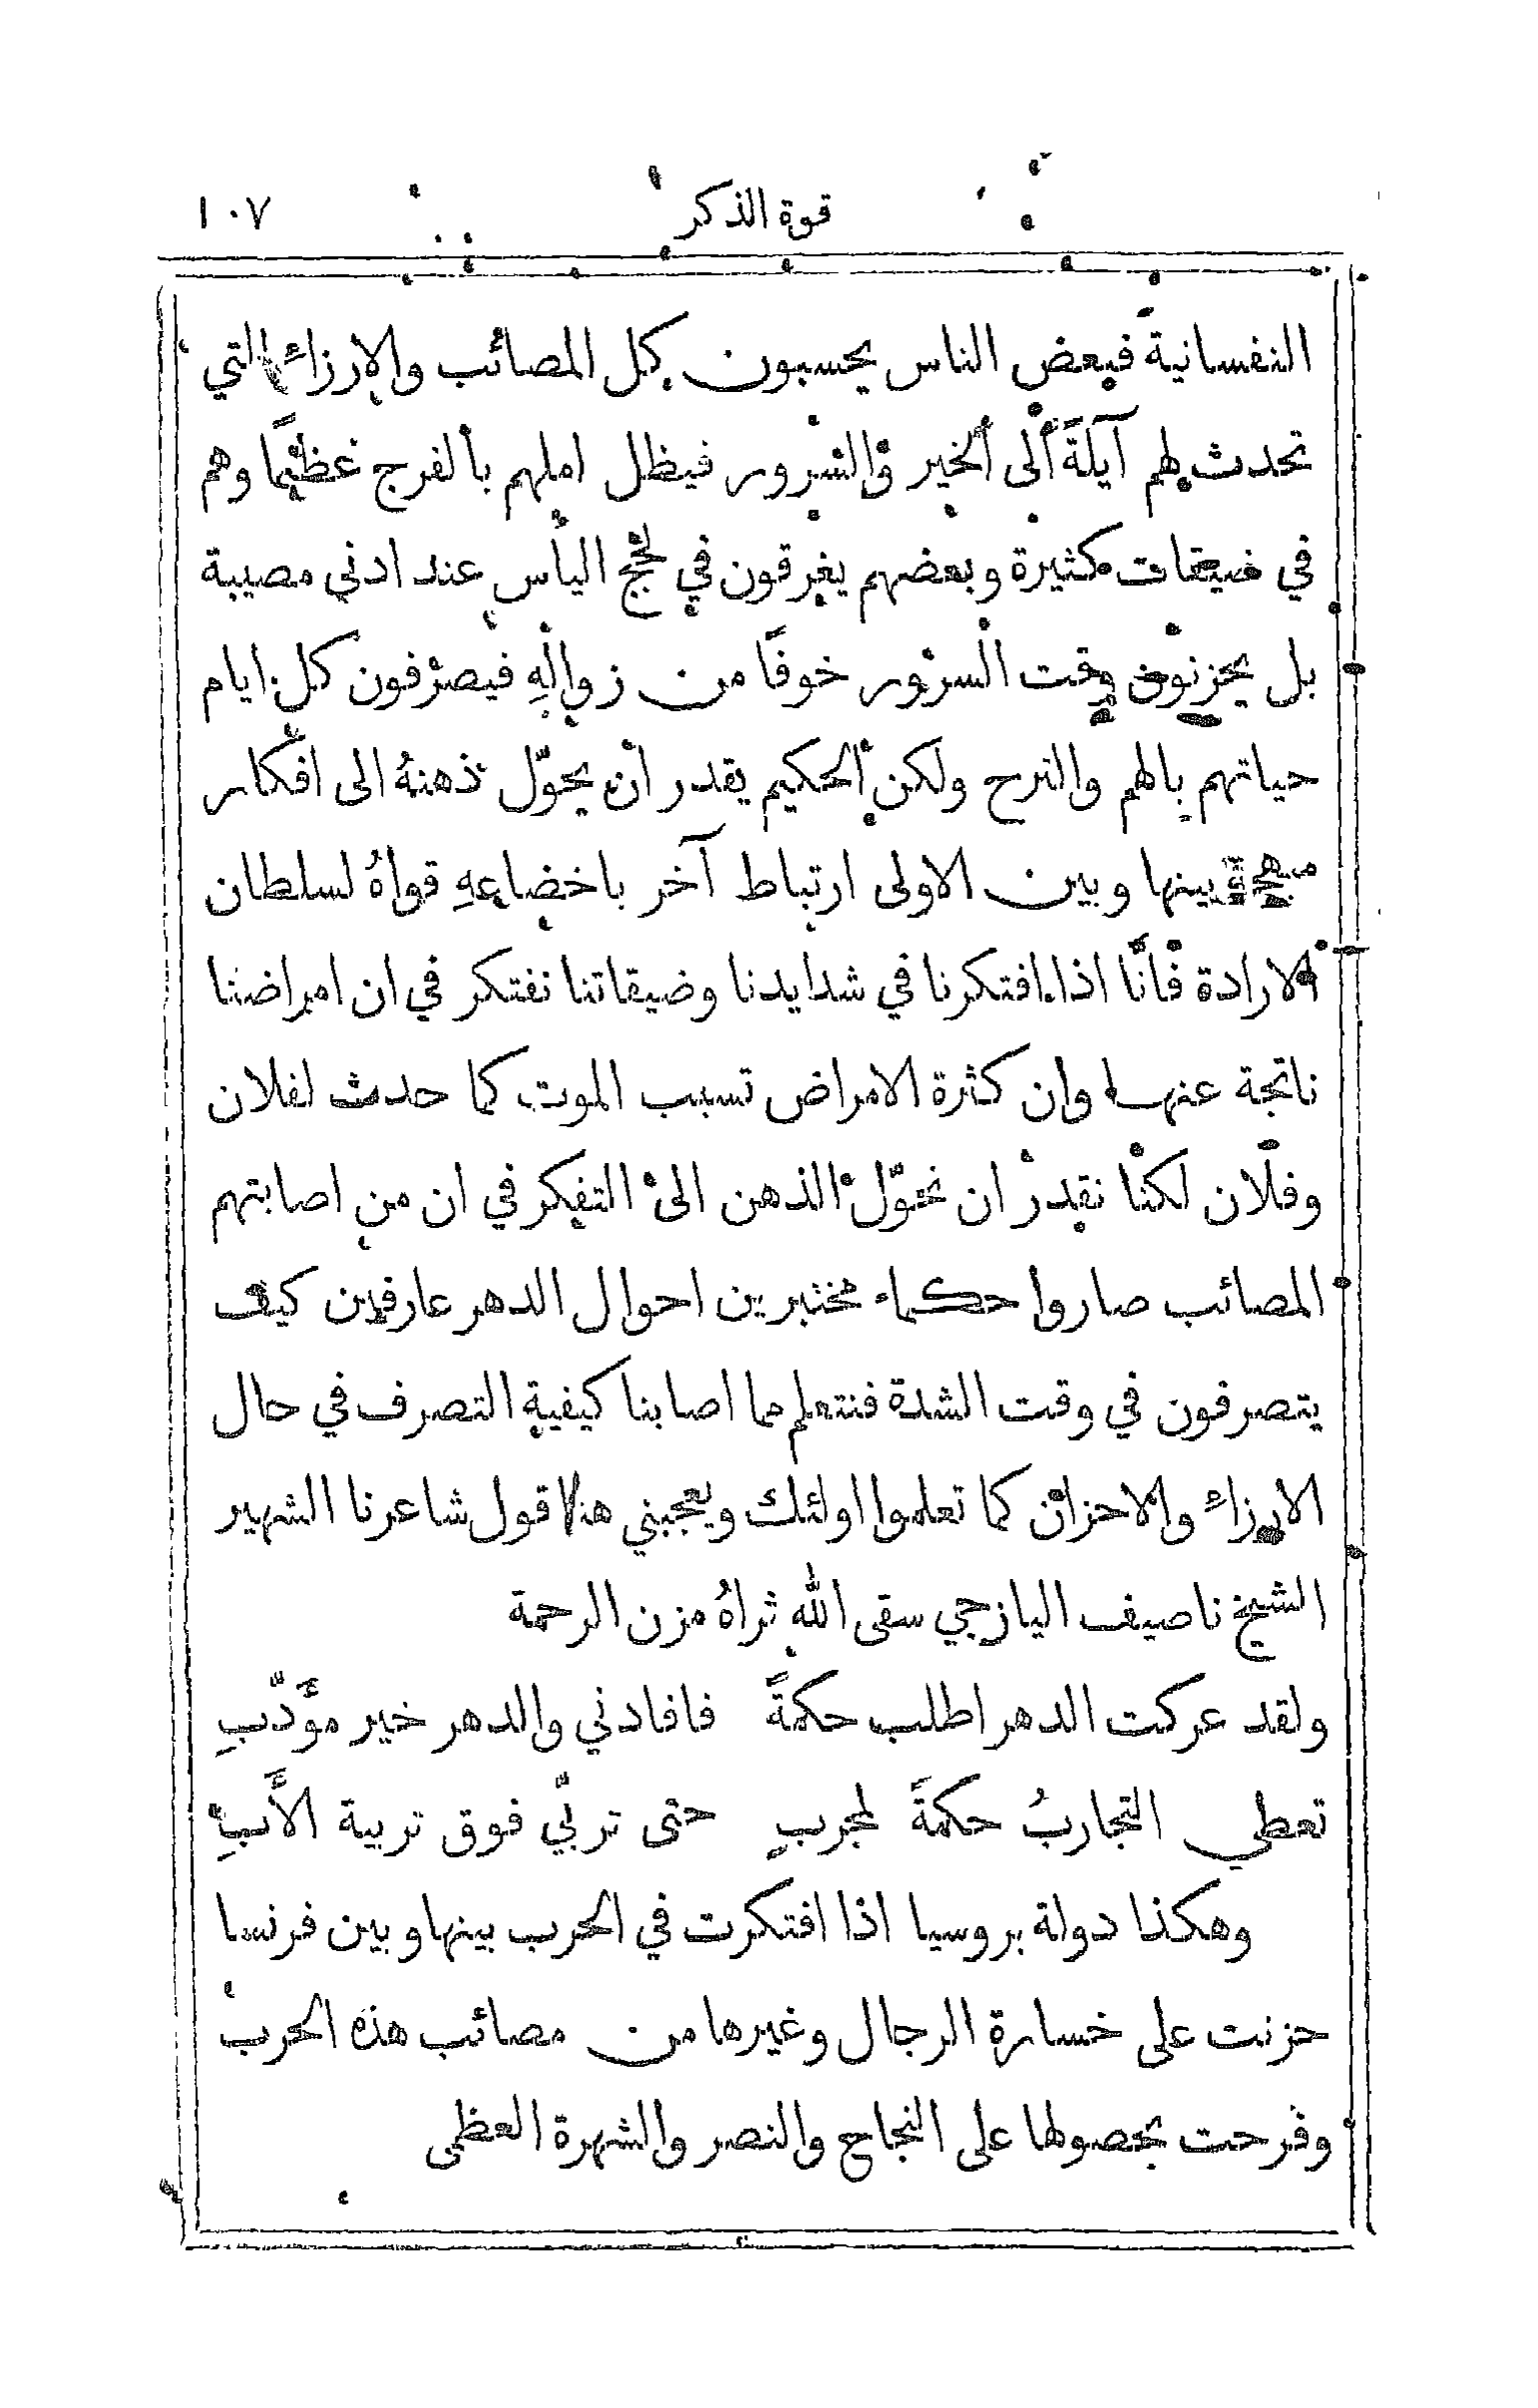 قوة الذكر ١٠٧
النفسانية فبعض الناس يحسبون كل المصائب والارزاء التي
تحدث لهم آيلةً الى الخير والسرور فيظل املهم بالفرج عظيمًا وهم
في ضيقات كثيرة وبعضهم يغرقون في لجج اليأس عند ادنى مصيبة
بل يحزنون وقت السرور خوفًا من زوالهِ فيصرفون كل ايام
حياتهم بالهم والترح ولكن الحكيم يقدر ان يحوّل ذهنهُ الى افكار
مبهجة بينها وبين الاولى ارتباط آخر باخضاعهِ قواهُ لسلطان
الارادة فانَّا اذا افتكرنا في شدايدنا وضيقاتنا نفتكر في ان امراضنا
ناتجة عنها وان كثرة الامراض تسبب الموت كما حدث لفلان
وفلان لكنَّا نقدر ان نحوّل الذهن الى التفكر في ان من اصابتهم
المصائب صاروا حكماء مختبرين احوال الدهر عارفين كيف
يتصرفون في وقت الشدة فنتعلم مما اصابنا كيفية التصرف في حال
الارزاء والاحزان كما تعلموا اولئك ويعجبني هنا قول شاعرنا الشهير
الشيخ ناصيف اليازجي سقى الله ثراهُ مزن الرحمة
ولقد عركت الدهر اطلب حكمةً فافادني والدهر خير مؤَدّبِ
تعطي التجاربُ حكمةً لمجربٍ حتى تربّي فوق تربية الأَبِ
وهكذا دولة بروسيا اذا افتكرت في الحرب بينها وبين فرنسا
حزنت على خسارة الرجال وغيرها من مصائب هذه الحرب
وفرحت بحصولها على النجاح والنصر والشهرة العظمى